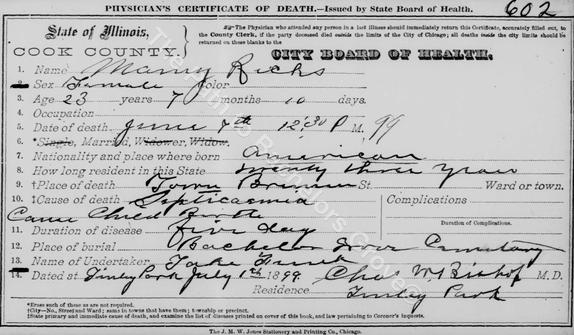 PHYSICIAN'S CERTIFICATE OF DEATH.—Issued by State Board of Health. 602
State of Illinois,
COOK COUNTY.
The Physician who attended any person in a last illness should immediately return this Certificate, accurately filled out, to
the County Clerk, if the party deceased died outside the limits of the City of Chicago; all deaths inside the city limits should be
returned on these blanks to the
CITY BOARD OF HEALTH.
1. Name Ricks
2. Sex Female Color
3. Age 23 years 7 months 10 days.
4. Occupation
5. Date of death, June 7th 12:30 P M. 99
6. *Single, Married, Widower, Widow.
7. Nationality and place where born American
8. How long resident in this State twenty three years
9. †Place of death Town Bremen St. Ward or town.
10. ‡Cause of death Septicaemia Complications
Cause Child Birth
11. Duration of disease five day Duration of Complications.
12. Place of burial Bachelor Grove Cemetary
13. Name of Undertaker
14. Dated at Tinley Park July 1899. Chas W. Bishop M. D.
Residence Tinley Park
*Erase such of these as are not required.
†City—No., Street and Ward; same in towns that have them; township or precinct.
‡State primary and immediate cause of death, and examine the list of diseases printed on cover of this book, and law pertaining to Coroner's inquests.
The J. M. W. Jones Stationery and Printing Co., Chicago.